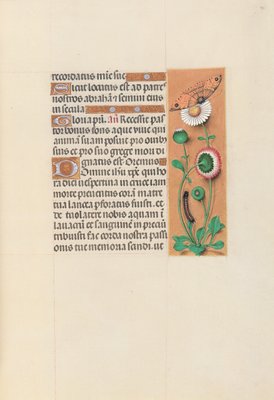 recordatus mie sue
Sicut locutus est ad patres
nostros abraham & semini eius
in secula
Gloria pri. an Recessit pas
tor bonus fons aque viue qui
animam suam posuit pro ouibus
suis et pro suo grege mori di
gnatus est Oremus
Domine ihu xpe qui ho
ra diei vespertina in cruce iam
mortuus
latere tua lancea perforatus fuisti. et
de tuo latere nobis aquam i
lauacrum et sanguinem in precium
tribuisti fac corda nostra passi
onis tue memoria scandi. ut